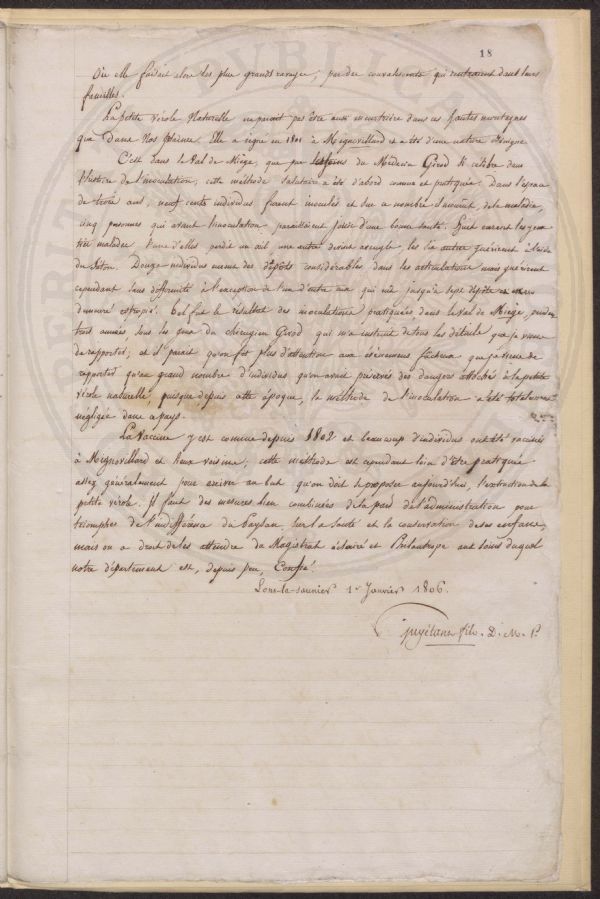 18
Où elle faisait alors les plus grands ravages, par des convalescents qui rentraient dans leurs
familles.
La petite vérole Naturelle ne parait pas être aussi meurtrière dans ces hautes montagnes
que dans Nos plaines. Elle a régné en 1801 à Mignovillard et a été d'une nature bénigne.
C'est dans le Val de Miège, que par les soins du Médecin Girod si célèbre dans
l'histoire de l'inoculation, cette méthode salutaire a été d'abord connue et pratiquée. Dans l'espace
de trois ans, neuf cents individus furent inoculés et sur ce nombre de la maladie,
cinq personnes qui avant l'inoculation, paraissaient jouir d'une bonne santé. huit eurent les yeux
très malades l'une d'elles perdit un œil une autre devint aveugle, les six autres guérirent à l'aide
du Séton. Douze individus eurent des dépôts considérables dans les articulations mais guérirent
cependant sans difformité à l'exception de l'un d'entre eux qui eût jusqu'à sept dépôts et
demeuré estropié. tel fut le résultat des inoculations pratiquées dans le Val de Miège, pendant
trois années sous les yeux du chirurgien Girod qui m'a instruit de tous les détails que je viens
de rapporter; et il parait qu'on fit plus d'attention aux événemens fâcheux que je viens de
rapporter qu'au grand nombre d'individus qu'on avait préservés des dangers attachés à la petite
vérole naturelle, puisque depuis cette époque, la méthode de l'inoculation a été totalement
négligée dans ce pays.
La Vaccine y est connue depuis 1802 et beaucoup d'individus ont été vaccinés
à Mignovillard et lieux voisins; cette méthode est cependant loin d'être pratiquée
assez généralement pour arriver au but qu'on doit se proposer aujourd'hui, l'extinction de la
petite vérole. Il faut des mesures bien combinées de la part de l'administration pour
triompher de l'indifférence du paysan, sur la Santé et la conservation de ses enfans,
mais on a droit de les attendre du Magistrat éclairé et Philantrope aux soins duquel
notre département est, depuis peu, Confié.
Lons-le-saunier 1er Janvier 1806.
fils. D. M. P.